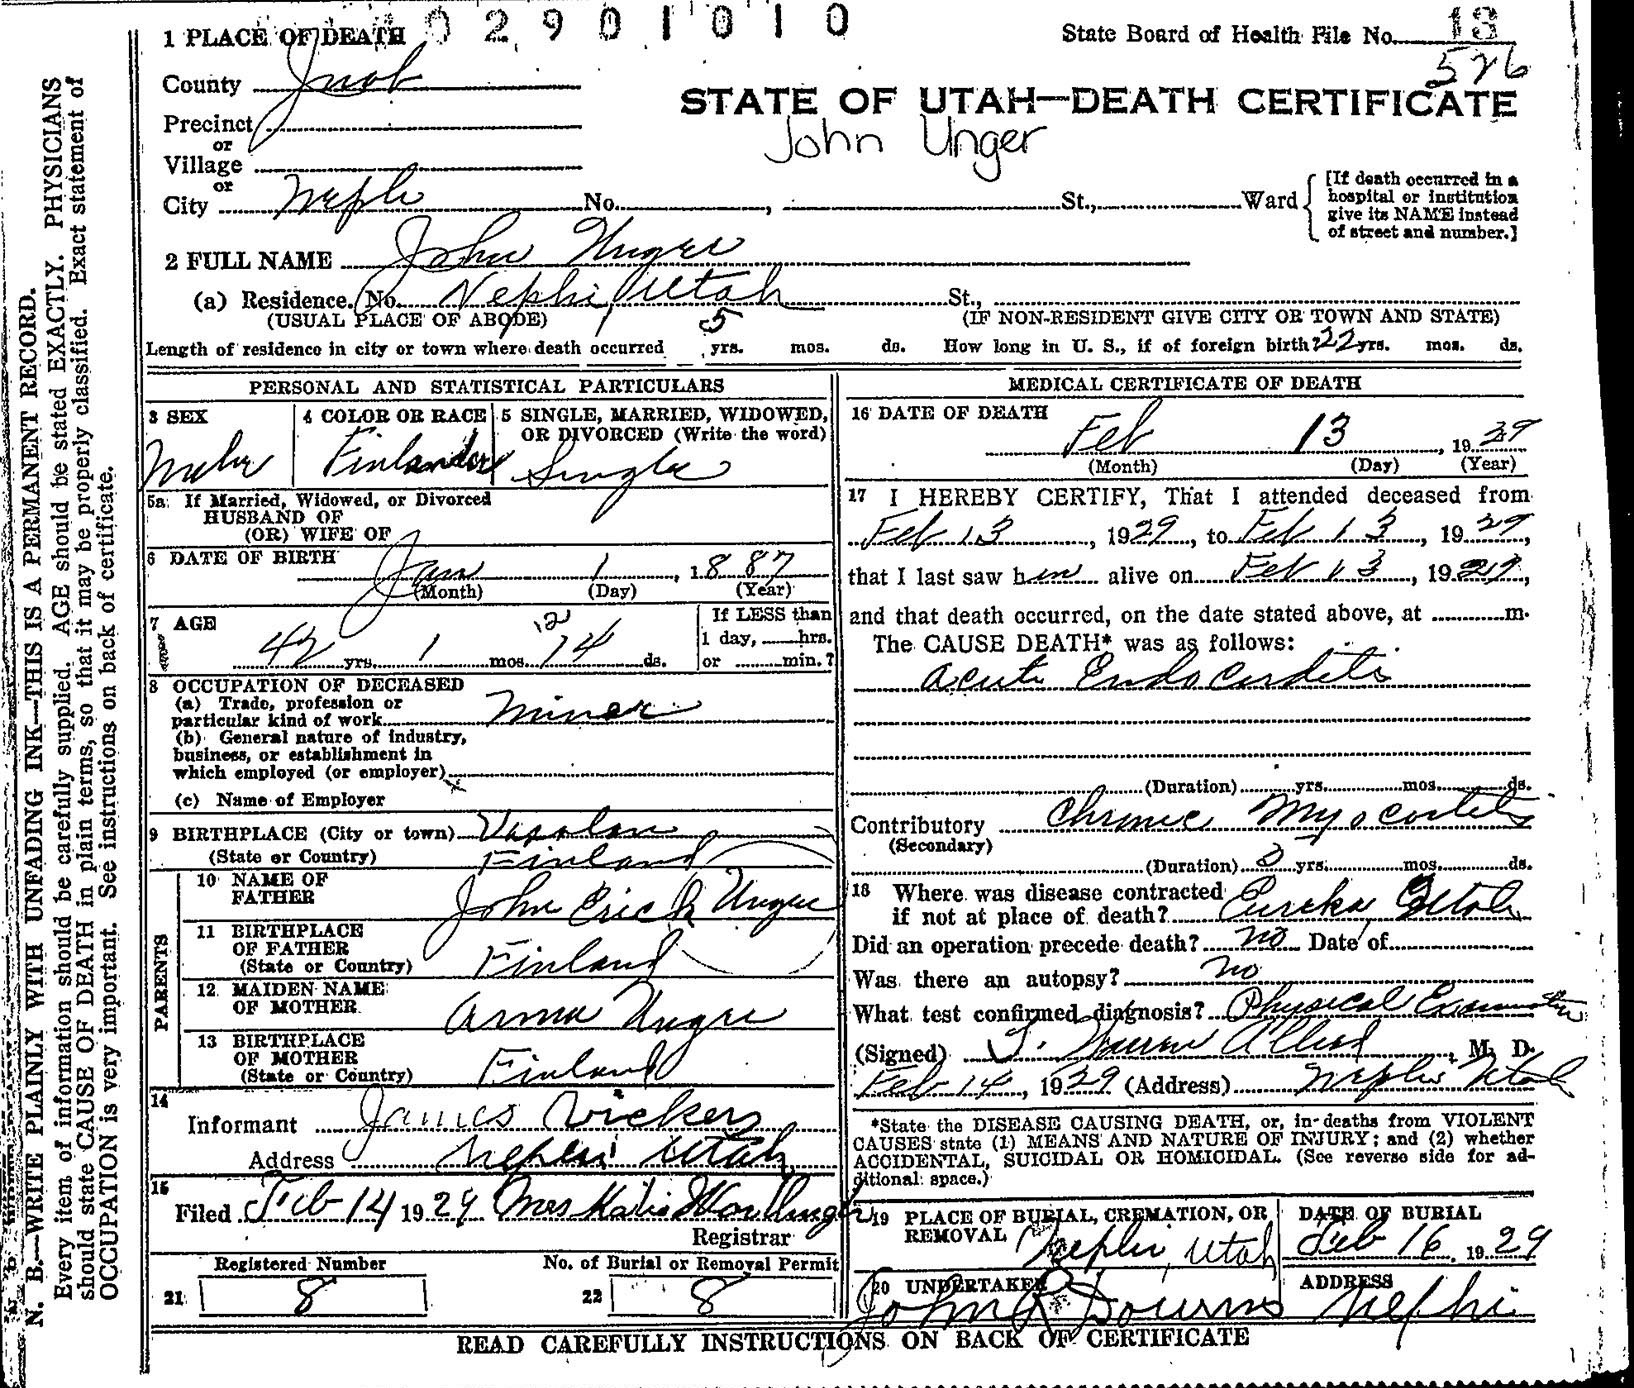 02901010
State Board of Health File No. 13
526
1 PLACE OF DEATH
County Juab
STATE OF UTAH—DEATH CERTIFICATE
Precinct
or
John Unger
Village
or
City Nephi No. , St., Ward
[If death occurred in a
hospital or institution
give its NAME instead
of street and number.]
2 FULL NAME John Unger
(a) Residence. No. Nephi, Utah St.,
(USUAL PLACE OF ABODE) (IF NON-RESIDENT GIVE CITY OR TOWN AND STATE)
Length of residence in city or town where death occurred 5 yrs. mos. ds. How long in U. S., if of foreign birth? 22 yrs. mos. ds.
PERSONAL AND STATISTICAL PARTICULARS
3 SEX
4 COLOR OR RACE
5 SINGLE, MARRIED, WIDOWED,
OR DIVORCED (Write the word)
Finlander
Single
5a If Married, Widowed, or Divorced
HUSBAND OF
(OR) WIFE OF
6 DATE OF BIRTH
Jan 1, 1887
(Month) (Day) (Year)
7 AGE
If LESS than
1 day, hrs.
or min.?
12
42 yrs. 1 mos. 14 ds.
8 OCCUPATION OF DECEASED
(a) Trade, profession or
particular kind of work Miner
(b) General nature of industry,
business, or establishment in
which employed (or employer)
(c) Name of Employer
9 BIRTHPLACE (City or town)
(State or Country) Finland
PARENTS
10 NAME OF
FATHER John Erick Unger
11 BIRTHPLACE
OF FATHER
(State or Country) Finland
12 MAIDEN NAME
OF MOTHER Unger
13 BIRTHPLACE
OF MOTHER
(State or Country) Finland
14
Informant James Vickers
Address Nephi Utah
15
Filed Feb 14 1929 Mrs
Registrar
Registered Number
21 8
No. of Burial or Removal Permit
22 8
MEDICAL CERTIFICATE OF DEATH
16 DATE OF DEATH
Feb 13, 1929
(Month) (Day) (Year)
17 I HEREBY CERTIFY, That I attended deceased from
Feb 13, 1929, to Feb 13, 1929,
that I last saw him alive on Feb 13, 1929,
and that death occurred, on the date stated above, at m.
The CAUSE DEATH* was as follows:
Acute Endocarditis
(Duration) yrs. mos. ds.
Contributory Chronic Myocarditis
(Secondary)
(Duration) 3 yrs. mos. ds.
18 Where was disease contracted
if not at place of death? Eureka, Utah
Did an operation precede death? no Date of
Was there an autopsy? no
What test confirmed diagnosis? Physical Examination
(Signed) Warren Allred, M. D.
Feb 14, 1929 (Address) Nephi Utah
*State the DISEASE CAUSING DEATH, or, in deaths from VIOLENT
CAUSES state (1) MEANS AND NATURE OF INJURY; and (2) whether
ACCIDENTAL, SUICIDAL OR HOMICIDAL. (See reverse side for ad-
ditional space.)
19 PLACE OF BURIAL, CREMATION, OR
REMOVAL Nephi, Utah
DATE OF BURIAL
Feb 16, 1929
20 UNDERTAKER
John
ADDRESS
Nephi
READ CAREFULLY INSTRUCTIONS ON BACK OF CERTIFICATE
N. B.—WRITE PLAINLY WITH UNFADING INK—THIS IS A PERMANENT RECORD.
Every item of information should be carefully supplied. AGE should be stated EXACTLY. PHYSICIANS
should state CAUSE OF DEATH in plain terms, so that it may be properly classified. Exact statement of
OCCUPATION is very important. See instructions on back of certificate.